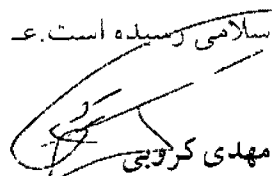 سلامی رسیده است.عـ
مهدی کروبی